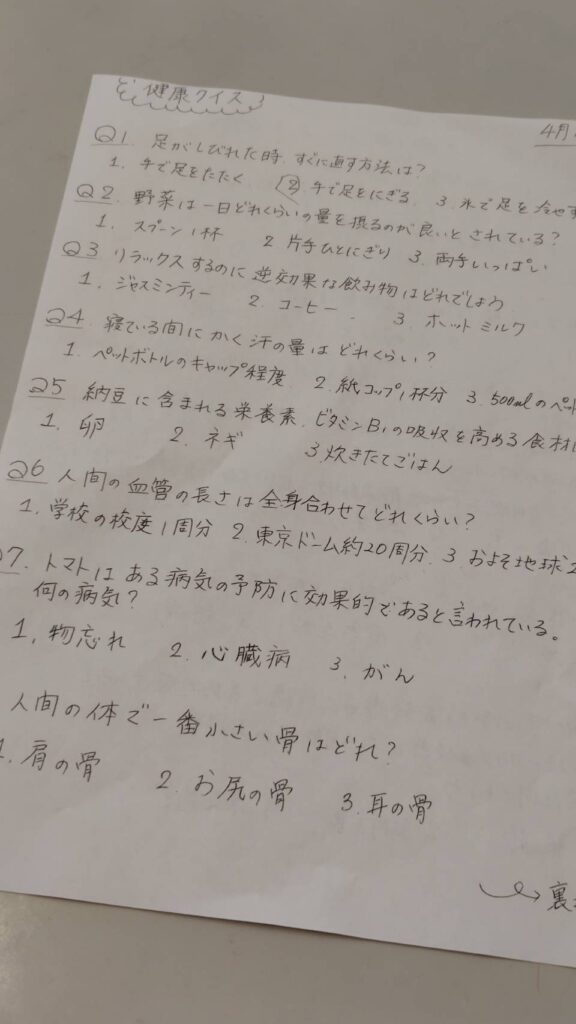 健康クイズ
4月
Q1. 足がしびれた時、すぐに直す方法は?
1. 手で足をたたく ② 手で足をにぎる 3. 氷で足を冷やす
Q2. 野菜は一日どれくらいの量を摂るのが良いとされている?
1. スプーン1杯 2 片手ひとにぎり 3. 両手いっぱい
Q3 リラックスするのに逆効果な飲み物はどれでしょう
1. ジャスミンティー 2. コーヒー 3. ホットミルク
Q4. 寝ている間にかく汗の量はどれくらい?
1. ペットボトルのキャップ程度. 2. 紙コップ1杯分 3. 500mlのペット
Q5 納豆に含まれる栄養素、ビタミンB1の吸収を高める食材は
1. 卵 2. ネギ 3. 炊きたてごはん
Q6 人間の血管の長さは全身合わせてどれくらい?
1. 学校の校庭1周分 2. 東京ドーム約20周分. 3 およそ地球2
Q7. トマトはある病気の予防に効果的であると言われている。
何の病気?
1. 物忘れ 2. 心臓病 3. がん
人間の体で一番小さい骨はどれ?
1. 肩の骨 2. お尻の骨 3. 耳の骨
裏